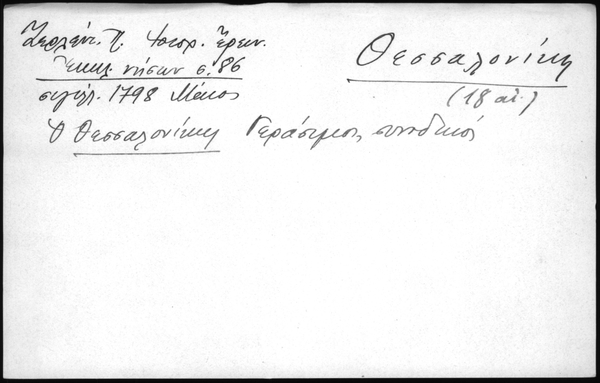 Ζερλέντ. Π. Ἱστορ. Ἔρευν.
Ἐκκλ. νήσων σ. 86
σιγίλ. 1798 Μάιος
Θεσσαλονίκη
(18 αἰ.)
Ὁ Θεσσαλονίκης Γεράσιμος, συνοδικός